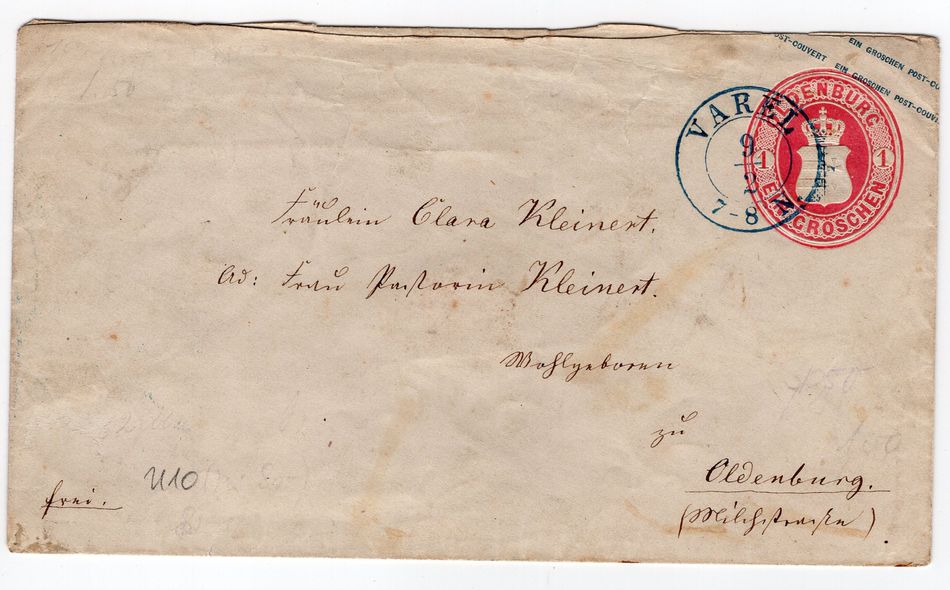 EIN GROSCHEN POST-CO
OST-COUVERT EIN GROSCHEN POST-COUV
OLDENBURG
1 1
EIN GROSCHEN
VAREL
9
2
7-8 N
Fräulein Clara Kleinert.
Ad: Frau Pastorin Kleinert.
Wohlgeboren
zu
Oldenburg.
(Milchstraße)
frei.
U10
50